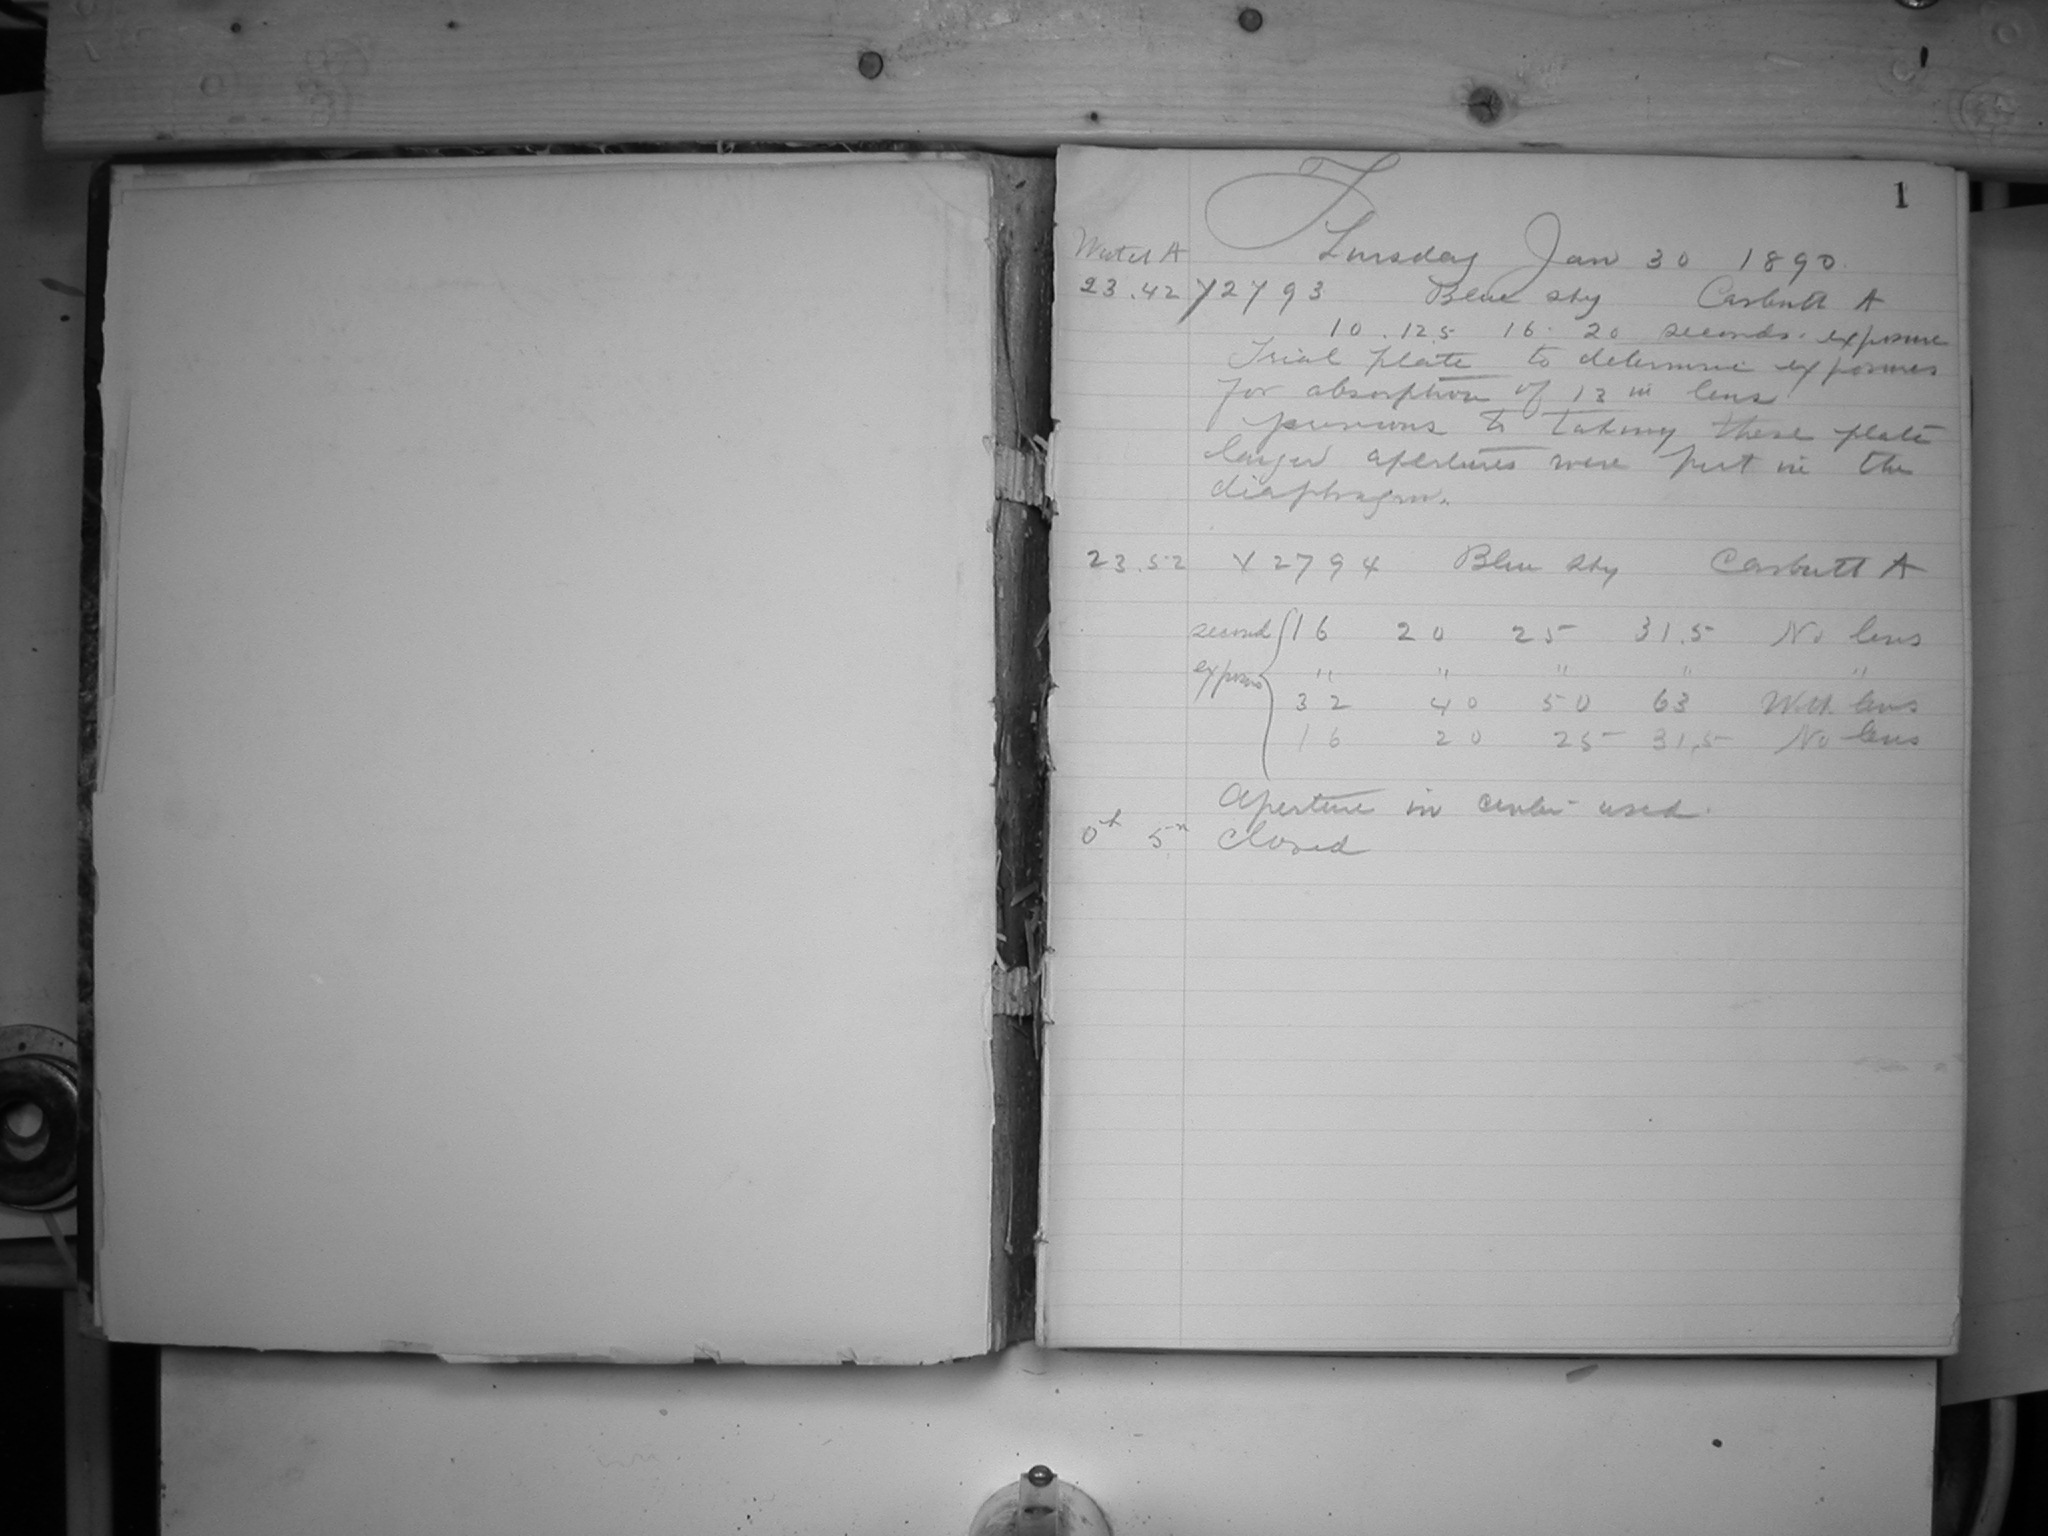 1
Thursday Jan 30 1890.
Watch A
23.42 Y2793 Blue sky Carbutt A
10. 12.5 16. 20 seconds. exposure
Trial plate to determine exposures
for absorption of 13 in lens
previous to taking these plate
larger apertures were put in the
diaphragm.
23.52 Y2794 Blue sky Carbutt A
second 16 20 25 31.5 No lens
exposure " " " " "
32 40 50 63 With lens
16 20 25 31.5 No lens
Aperture in center used.
0h 5m Closed